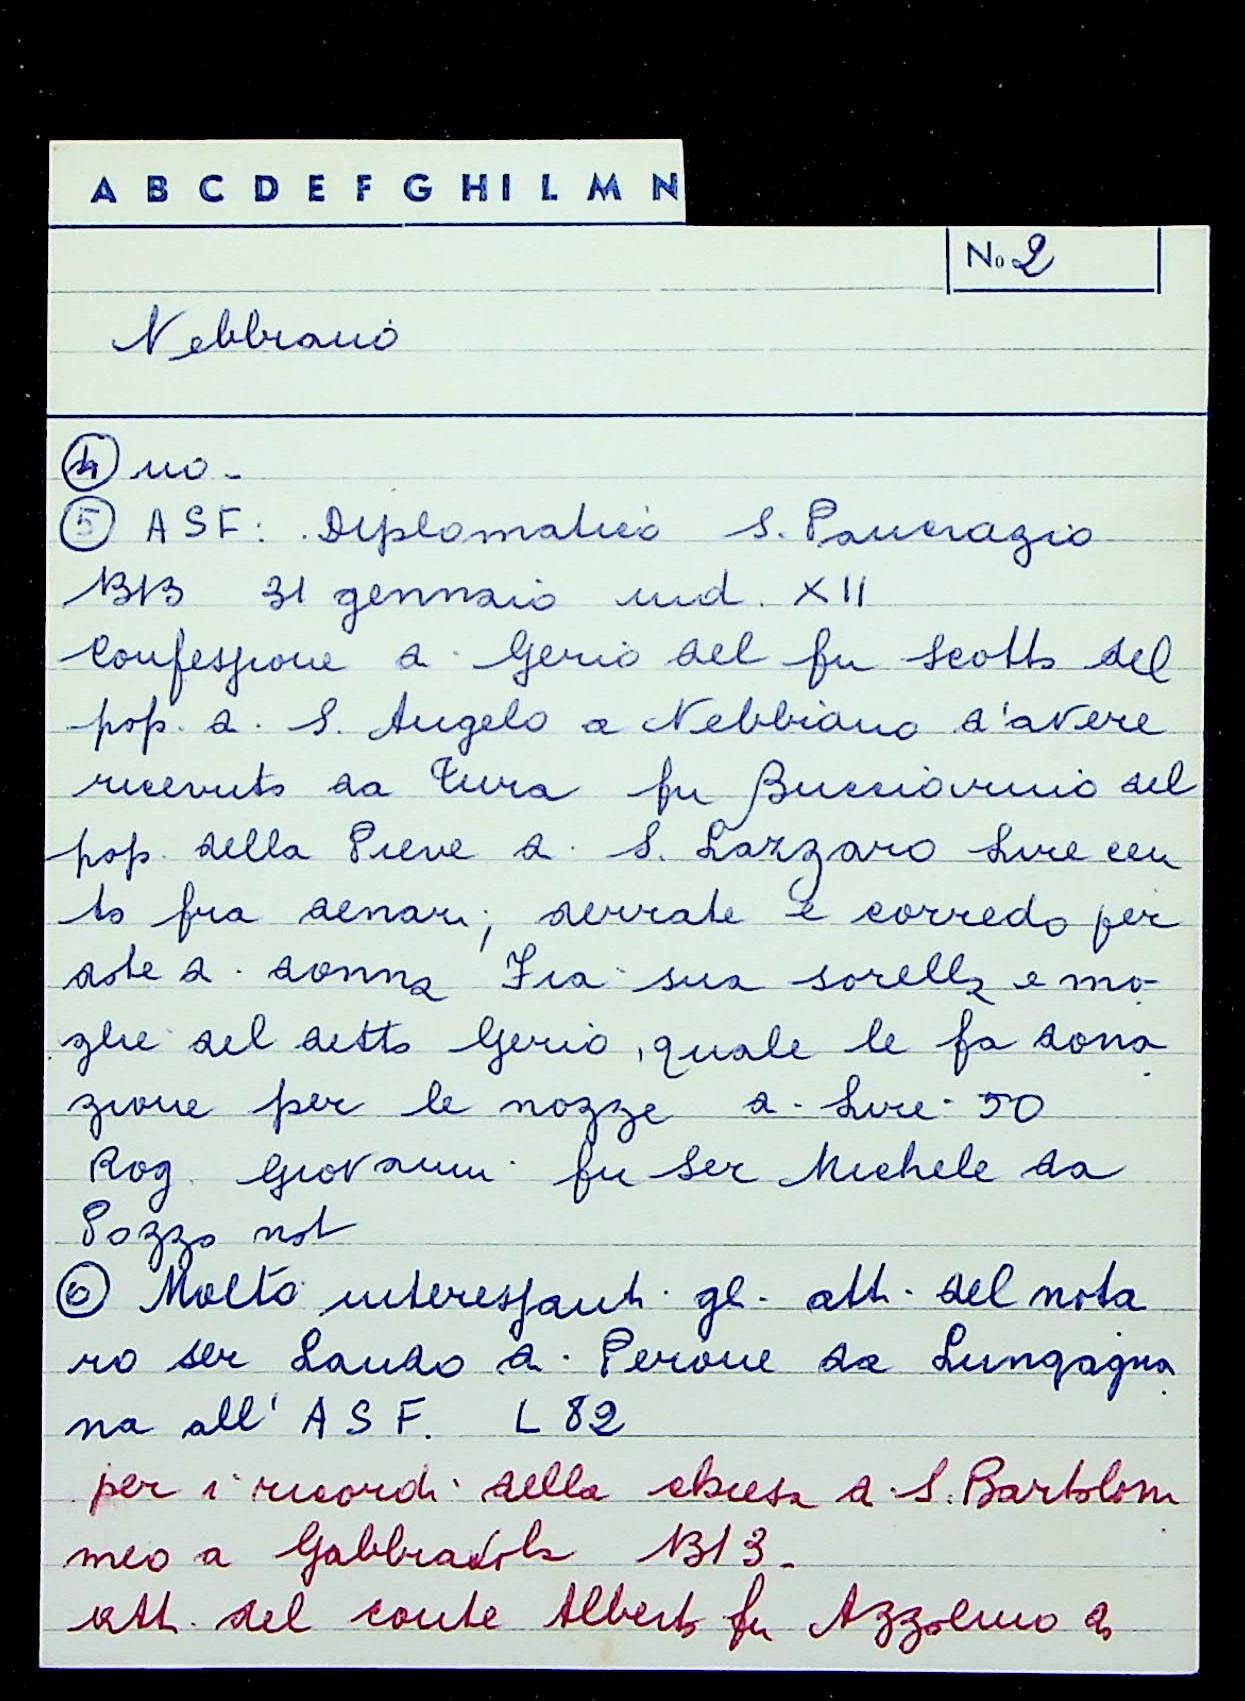 A B C D E F G H I L M N
No 2
Nebbiano
4 no -
5 ASF: Diplomatico S. Pancrazio
1313 31 gennaio ind. XII
Confessione di Gerio del fu Scotto del
pop. di S. Angelo a Nebbiano d'avere
ricevuto da Tura fu
del
pop. della Pieve di S. Lazzaro Lire cen
to fra denari, derrate e corredo per
dote di donna sua sorella e mo-
glie del detto Gerio, quale le fa dona
zione per le nozze di Lire 50
Rog. Giovanni fu Ser Michele da
Pozzo not
6 Molto interessanti gli atti del nota
ro ser Lando di Perone da Lungagna
na all' ASF. L 82
per i ricordi della chiesa di S. Bartolom
meo a Gabbiavola 1313 -
atti del conte Alberto fu Azzolino di